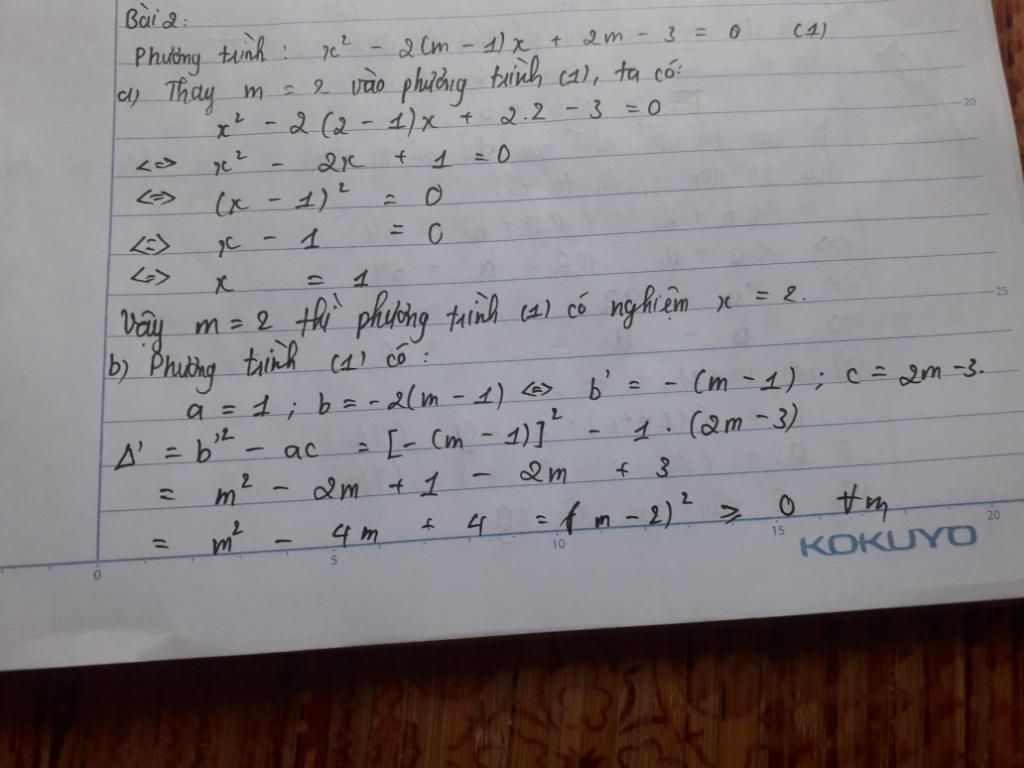 Bài 2:
Phương trình: x² - 2(m - 1)x + 2m - 3 = 0 (1)
a) Thay m = 2 vào phương trình (1), ta có:
x² - 2(2 - 1)x + 2.2 - 3 = 0
<=> x² - 2x + 1 = 0
<=> (x - 1)² = 0
<=> x - 1 = 0
<=> x = 1
Vậy m = 2 thì phương trình (1) có nghiệm x = 2.
b) Phương trình (1) có:
a = 1; b = -2(m - 1) <=> b' = -(m - 1); c = 2m - 3.
Δ' = b'² - ac = [-(m - 1)]² - 1 . (2m - 3)
= m² - 2m + 1 - 2m + 3
= m² - 4m + 4 = (m - 2)² ⩾ 0 ∀m
KOKUYO
0 5 10 15 20
20
25